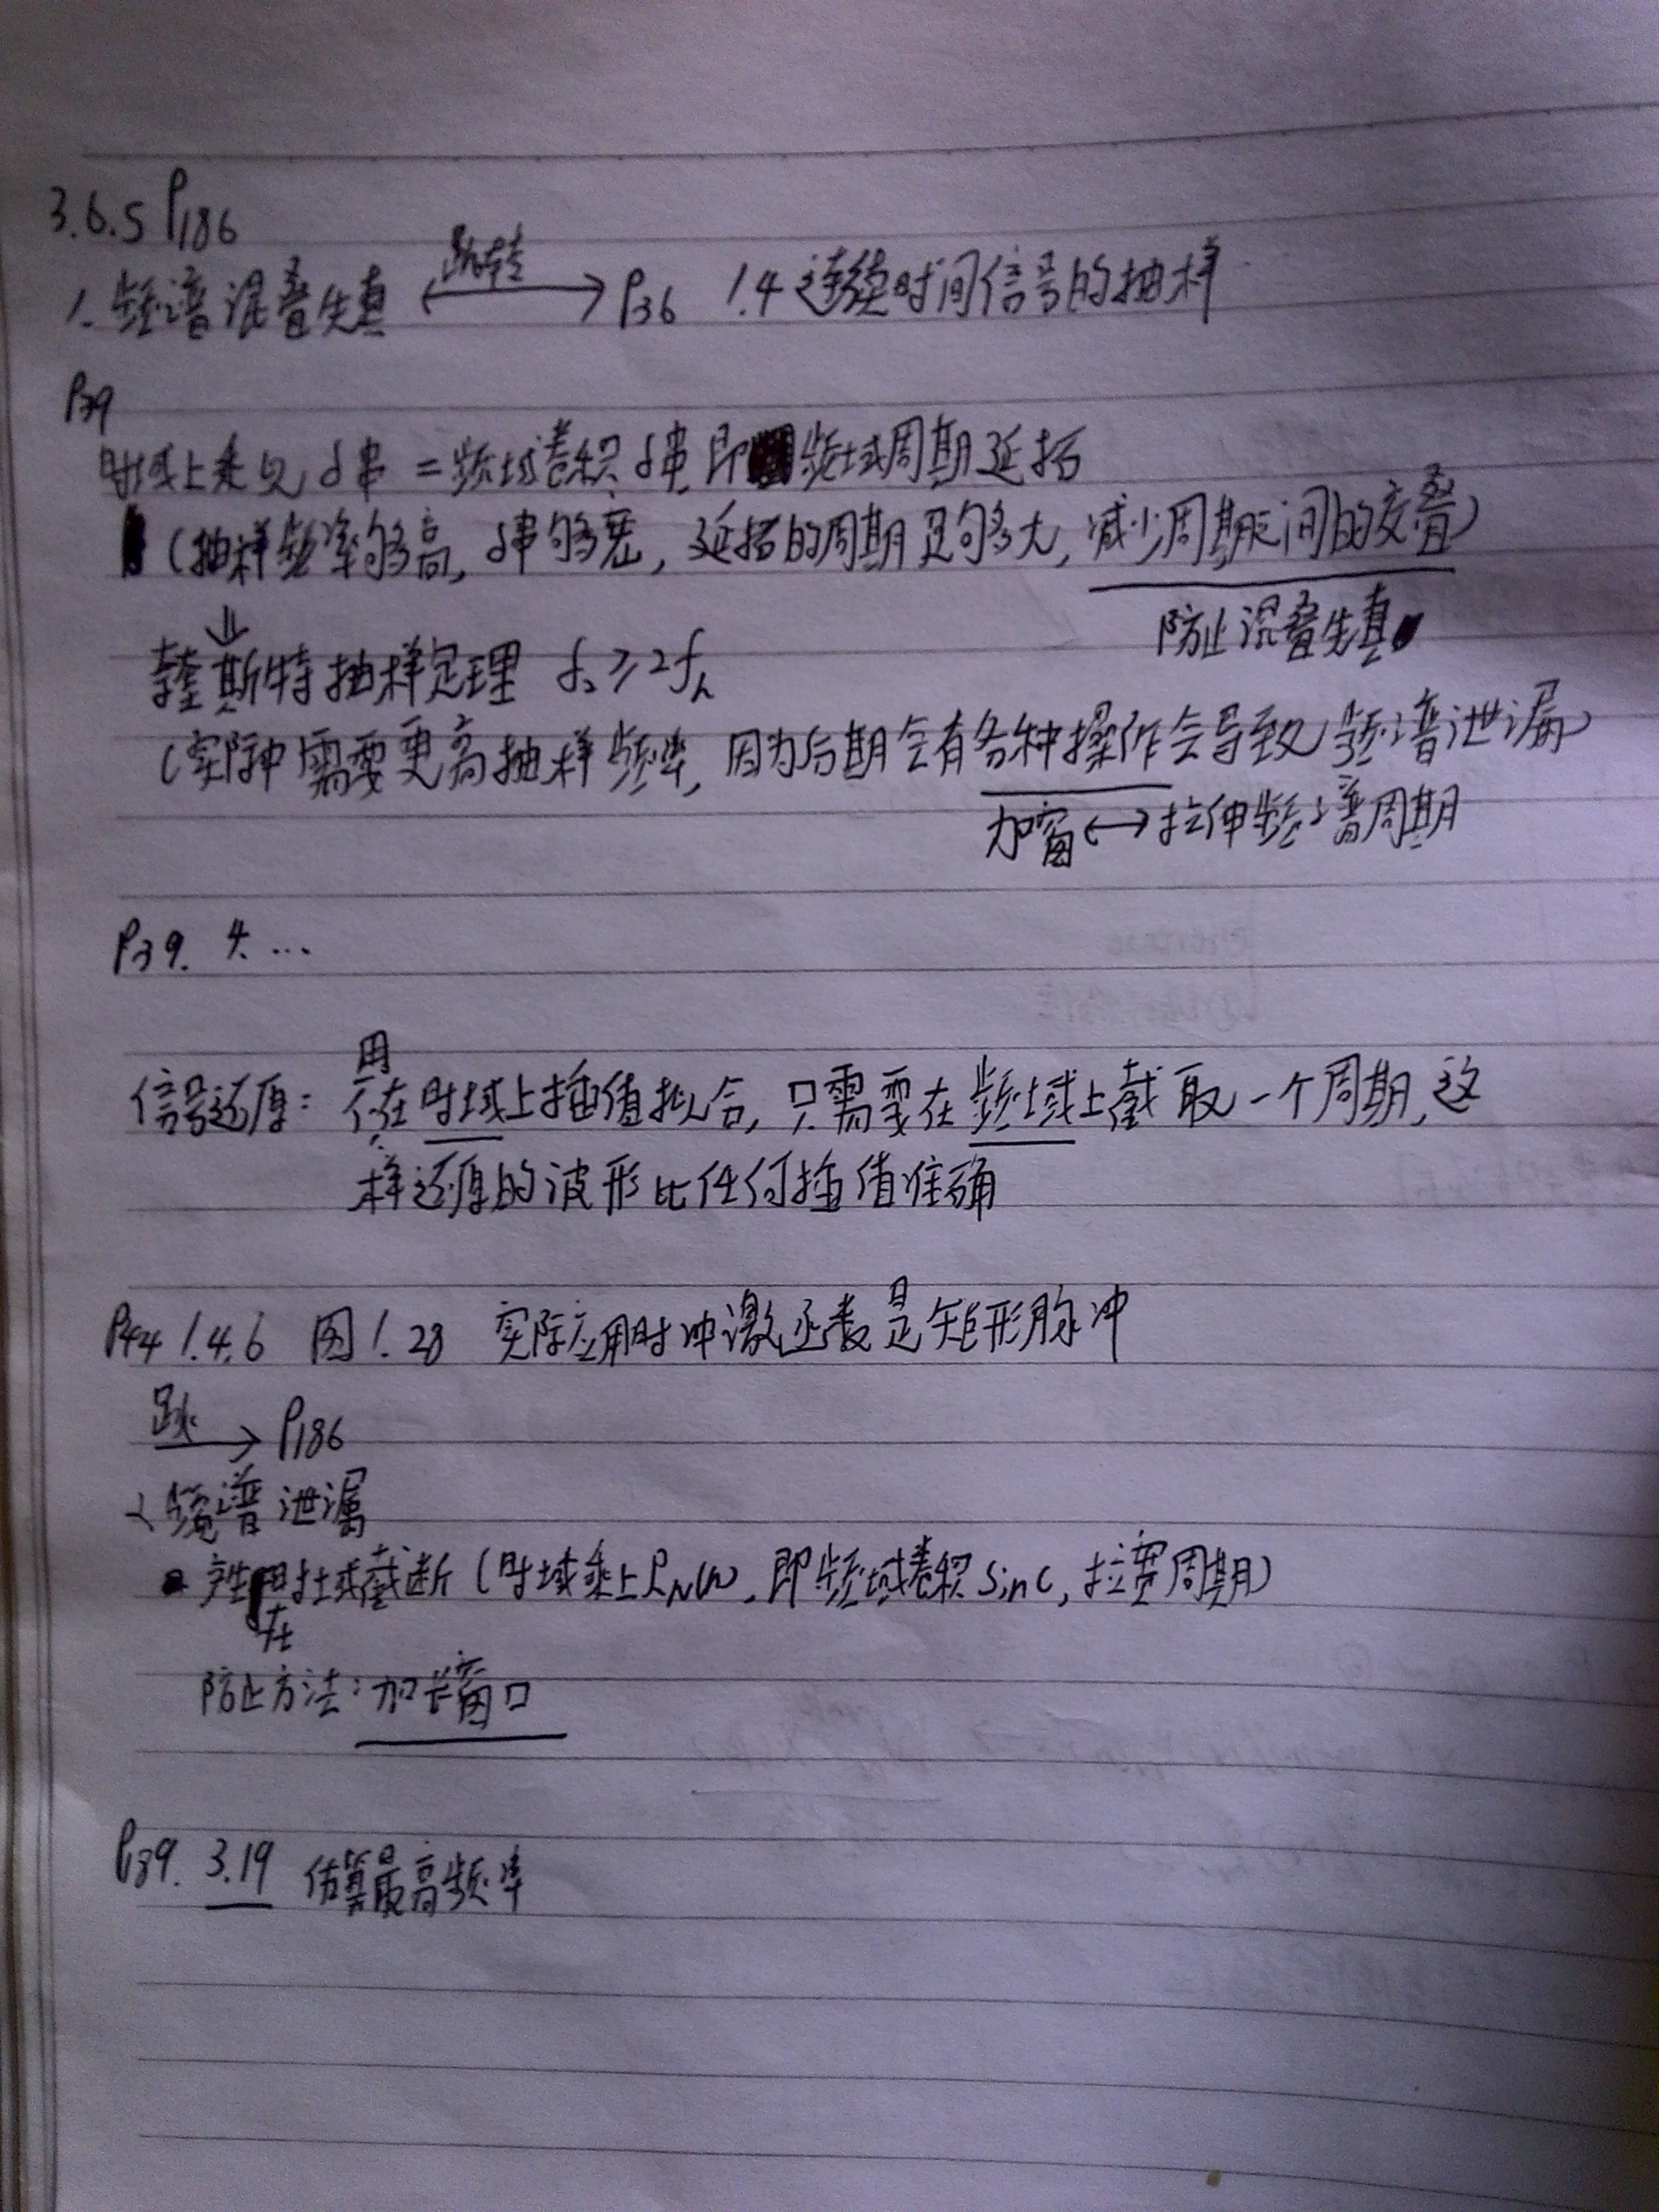 3.6.5 P186
1. 频谱混叠失真 ←跳转→ P36 1.4 连续时间信号的抽样
P39
时域上乘以δ串 = 频域卷积δ串,即频域周期延拓
(抽样频率够高,δ串够宽,延拓的周期足够大,减少周期之间的交叠)
⇓
防止混叠失真
奎斯特抽样定理 fs ≥ 2fh
(实际中需要更高抽样频率,因为后期会有各种操作会导致频谱泄漏)
加窗 ↔ 拉伸频谱周期
P39. 4. ...
信号还原: 不用在时域上插值拟合,只需要在频域上截取一个周期,这
样还原的波形比任何插值准确
P44 1.4.6 图1.28 实际应用时冲激函数是矩形脉冲
跳→ P186
2 频谱泄漏
产生在时域截断 (时域乘上RN(n),即频域卷积sinc,拉宽周期)
防止方法:加长窗口
P189. 3.19 估算最高频率